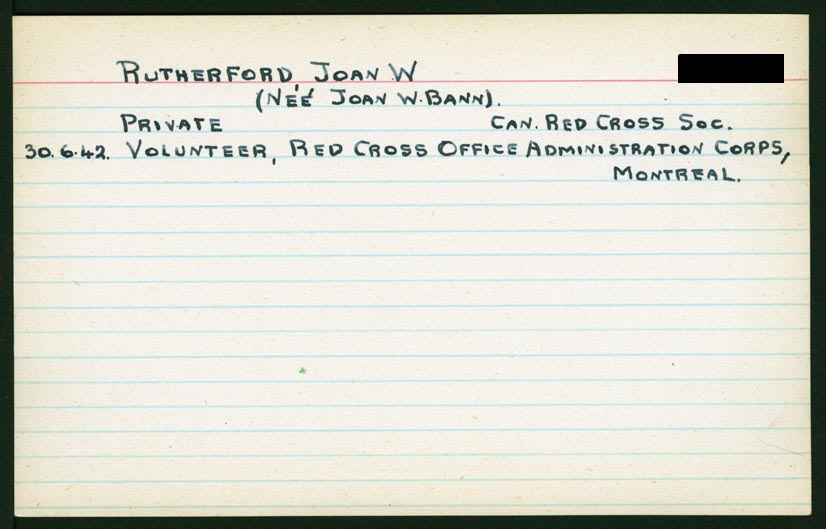 RUTHERFORD, JOAN W
(NÉÉ JOAN W. BANN).
PRIVATE CAN. RED CROSS SOC.
30.6.42. VOLUNTEER, RED CROSS OFFICE ADMINISTRATION CORPS,
MONTREAL.